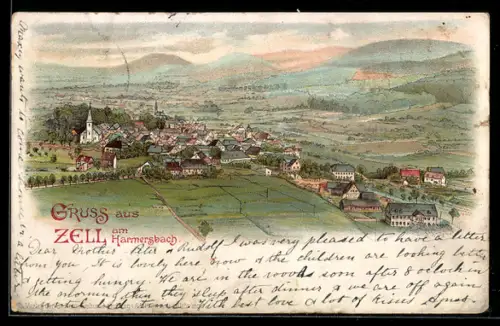 GRUSS aus
ZELL am
Harmersbach.
Dear Mother Peter & Rudolf I was very pleased to have a letter
from you. It is lovely here now & the children are looking better
& getting hungry. We are in the woods soon after 8 oclock in
the morning then they sleep after dinner & we are off again
until bed time. With best love & lot of kisses Agnes.